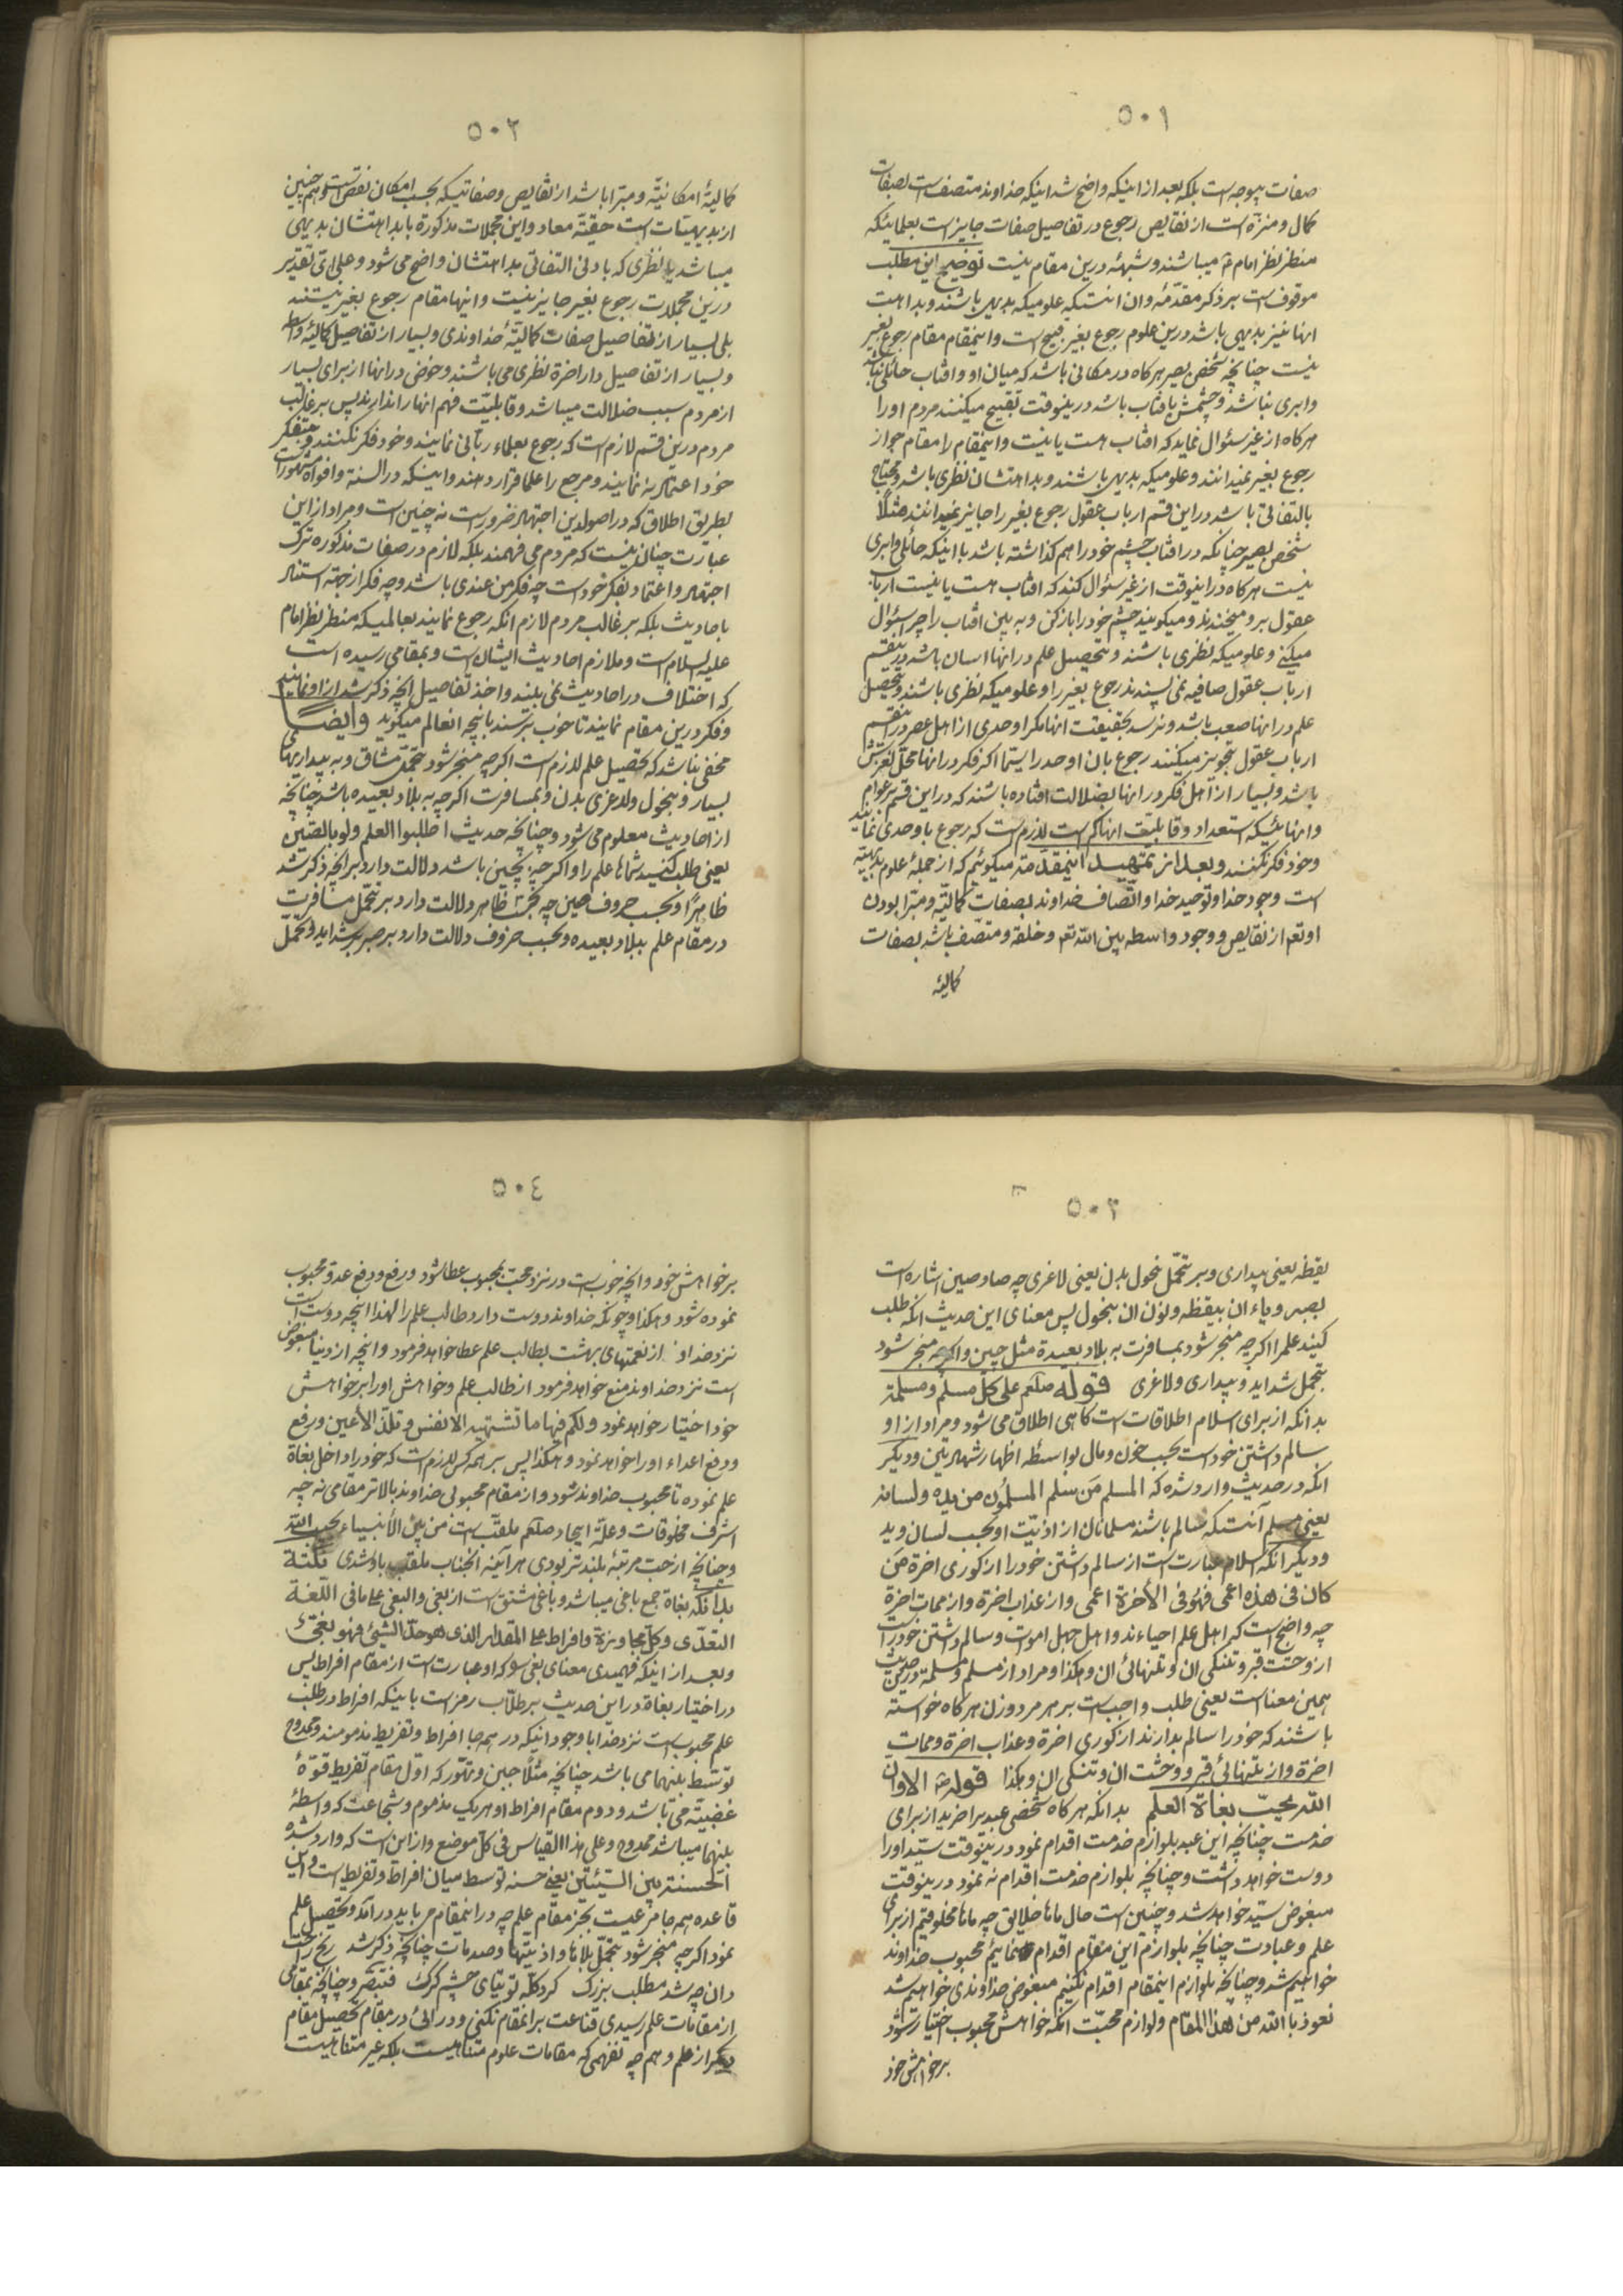 ٥٠١
صفات بیوجه است بلکه بعد از اینکه واضح شد اینکه خداوند متصف است بصفات
کمال و منزّه است از نقایص رجوع در تفاصیل صفات جایز است بعلمائیکه
منظر نظر امام ع میباشند و شبهه درین مقام نیست توضیح این مطلب
موقوف است بر ذکر مقدّمه و ان انستکه علومیکه بدیهی باشند و بداهت
انها نیز بدیهی باشد درین علوم رجوع بغیر قبیح است و اینمقام مقام رجوع بغیر
نیست چنانچه شخص بصیر هرکاه در مکانی باشد که میان او و افتاب حائلی نباشد
و ابری نباشد و چشمش بافتاب باشد درینوقت تقبیح میکنند مردم او را
هرکاه از غیر سئوال نماید که افتاب هست یا نیست و اینمقام را مقام جواز
رجوع بغیر نمیدانند و علومیکه بدیهی باشند و بداهتشان نظری باشد و محتاج
بالتفاتی باشد در این قسم ارباب عقول رجوع بغیر را جایز نمیدانند مثلًا
شخص بصیر چنانکه در افتاب چشم خود را هم کذاشته باشد با اینکه حائلی و ابری
نیست هرکاه در اینوقت از غیر سئوال کند که افتاب هست یا نیست ارباب
عقول بر او میخندند و میکویند چشم خود را باز کن و به بین افتاب را چرا سئوال
میکنی و علومیکه نظری باشند و تحصیل علم در انها اسان باشد درینقسم
ارباب عقول صافیه نمی پسندند رجوع بغیر را و علومیکه نظری باشند و تحصیل
علم در انها صعب باشد و نرسد بحقیقت انها مکر اوحدی از اهل عصر درینقسم
ارباب عقول تجویز میکنند رجوع بان اوحد را لاسیما اکر فکر در انها محلّ لغزش
باشد و بسیار از اهل فکر در انها بضلالت افتاده باشند که در این قسم بر عوام
و انهائیکه استعداد و قابلیّت انها کم است لازم است که رجوع باوحدی نمایند
و خود فکر نکنند و بعد از تمهید اینمقدّمه میکوئیم که از جملهٔ علوم بدیهیّه
است وجود خدا و توحید خدا و اتّصاف خداوند بصفات کمالیّه و مبّرا بودن
او تعم از نقایص و وجود واسطه بین اللّه تعم و خلقه و متصّف باشد بصفات
کمالیّه
٥٠٢
کمالیّهٔ امکانیّه و مبّرا باشد از نقایص و صفاتیکه بحسب امکان نقص است و هم چنین
از بدیهیّات است حقیّة معاد و این مجملات مذکوره یا بداهتشان بدیهی
میباشد یا نظری که بادنی التفاتی بداهتشان واضح می شود و علی ایّ تقدیر
درین مجملات رجوع بغیر جایز نیست و اینها مقام رجوع بغیر نیستند
بلی بسیار از تفاصیل صفات کمالیّهٔ خداوندی و بسیار از تفاصیل کمالیّهٔ واسطه
و بسیار از تفاصیل دار اخرة نظری می باشند و خوض در انها از برای بسیار
از مردم سبب ضلالت میباشد و قابلیّت فهم انها را ندارند پس بر غالب
مردم درین قسم لازم است که رجوع بعلماء ربّانی نمایند و خود فکر نکنند و بتفکر
خود اعتماد نه نمایند و مرجع را علما قرار دهند و اینکه در السنه و افواه مشهور است
بطریق اطلاق که در اصولدین اجتهاد ضرور است نه چنین است و مراد از این
عبارت چنان نیست که مردم می فهمند بلکه لازم در صفات مذکوره ترک
اجتهاد و اعتماد بفکر خود است چه فکر من عندی باشد و چه فکر از جهة استناد
باحادیث بلکه بر غالب مردم لازم انکه رجوع نمایند بعالمیکه منظر نظر امام
علیه السلام است و ملازم احادیث ایشان است و بمقامی رسیده است
که اختلاف در احادیث نمی بیند و اخذ تفاصیل انچه ذکر شد از او نمایند
و فکر درین مقام نمایند تا خوب برسند بانچه انعالم میکوید وایضًا
مخفی نباشد که تحصیل علم لازم است اکرچه منجّر شود بتحمّل مشاق و به بیداریهای
بسیار و بنحول و لاغری بدن و بمسافرت اکرچه به بلاد بعیده باشد چنانچه
از احادیث معلوم می شود و چنانچه حدیث اطلبوا العلم ولو بالصّین
یعنی طلب کنید شماها علم را و اکرچه بچین باشد دلالت دارد بر انچه ذکر شد
ظاهرًا و بحسب حروف صین چه بحسب ظاهر دلالت دارد بر تحمّل مسافرت
در مقام علم ببلاد بعیده و بحسب حروف دلالت دارد بر صبر بر شداید و تحمّل
٥٠٣
یقظه یعنی بیداری و بر تحمّل نحول بدن یعنی لاغری چه صاد صین اشاره است
بصبر و یاء ان بیقظه و نون ان بنحول پس معنای این حدیث انکه طلب
کنید علم را اکرچه منجر شود بمسافرت به بلاد بعیدة مثل چین و اکرچه منجر شود
بتحمل شداید و بیداری و لاغری قوله صلعم علی کلّ مسلم و مسلمة
بدانکه از برای اسلام اطلاقات است کاهی اطلاق می شود و مراد از او
سالم داشتن خود است بحسب خون و مال بواسطه اظهار شهادتین و دیکر
انکه در حدیث وارد شده که المسلم مَن سلم المسلمُون من یده و لسانه
یعنی مسلم آنستکه سالم باشند مسلمانان از اذیّت او بحسب لسان و ید
و دیکر انکه اسلام عبارت است از سالم داشتن خود را از کوری اخرة مَن
کان فی هذه اعمی فهُو فی الأخرة اعمی و از عذاب اخرة و از ممات اخرة
چه واضح است که اهل علم احیاءند و اهل جهل اموات و سالم داشتن خود را است
از وحشت قبر و تنکی ان و تنهائی ان و هکذا و مراد از مسلم و مسلمة درین حدیث
بهمین معنا است یعنی طلب واجب است بر هر مرد و زن هرکاه خواسته
باشند که خود را سالم بدارند از کوری اخرة و عذاب اخرة و ممات
اخرة و از تنهائی قبر و وحشت ان و تنکی ان و هکذا قوله ص الا وان
اللّه یحبّ بغاة العلم بدانکه هرکاه شخص عبد برا خرید از برای
خدمت چنانچه این عبد بلوازم خدمت اقدام نمود درینوقت سیّد او را
دوست خواهد داشت و چنانچه بلوازم خدمت اقدام نه نمود درینوقت
مبغوض سیّد خواهد شد و چنین است حال ماها خلایق چه ماها مخلوقیم از برای
علم و عبادت چنانچه بلوازم این مقام اقدام نمائیم محبوب خداوند
خواهیم شد و چنانچه بلوازم اینمقام اقدام نکنیم مبغوض خداوندی خواهیم شد
نعوذ باللّه من هذا المقام و لوازم محبّت انکه خواهش محبوب اختیار شود
بر خواهش خود
٥٠٤
بر خواهش خود و انچه خوب است در نزد محبّ بمحبوب عطا شود و رفع و دفع عدوّ محبوب
نموده شود و هکذا و چونکه خداوند دوست دارد طالب علم را لهذا انچه دوست است
نزد خداوند از نعمتهای بهشت بطالب علم عطا خواهد فرمود و انچه از دنیا مبغوض
است نزد خداوند منع خواهد فرمود از طالب علم و خواهش او را بر خواهش
خود اختیار خواهد نمود ولکم فیها ما تشتهیه الانفس و تلذّ الأعین و رفع
و دفع اعداء او را خواهد نمود و هکذا پس بر همه کس لازم است که خود را داخل بغاة
علم نموده تا محبوب خداوند شود و از مقام محبوبی خداوند بالاتر مقامی نه چه
اشرف مخلوقات و علّة ایجاد صلعم ملقّب است من بین الأنبیاء بحبیب اللّه
و چنانچه از حبّ مرتبهٔ بلند تر بودی هر آینه انجناب ملقّب باو شدی نکتة
بدانکه بغاة جمع باغی میباشد و باغی مشتق است از بغی و البغی علی ما فی اللّغة
التعدّی و کلّ مجاوزة و افراط علی المقدار الذی هو حدّ الشیئ فهو بغی
و بعد از اینکه فهمیدی معنای بغی را که او عبارت است از مقام افراط پس
در اختیار بغاة در این حدیث بر طلّاب رمز است باینکه افراط در طلب
علم محبوب است نزد خدا با وجود اینکه در همه جا افراط و تفریط مذمومند و ممدوح
توسّط بینهما می باشد چنانچه مثلًا جبن و تهوّر که اوّل مقام تفریط قوّهٔ
غضبیّه می باشد و دوم مقام افراط او هر یک مذموم و شجاعت که واسطهٔ
بینهما میباشد ممدوح و علی هذا القیاس فی کلّ موضع و از این است که وارد شده
الحسنة بین السّیئتین یعنی حسنه توسط میان افراط و تفریط است و این
قاعده همه جا مرعیست بجز مقام علم چه در اینمقام می باید در آمد و تحصیل علم
نمود اکرچه منجر شود بتحمّل بلاها و اذیّتها و صدمات چنانچه ذکر شد رنج راحت
دان چه شد مطلب بزرک کرد کله توتیای چشم کرک فتبصّر و چنانچه بمقامی
از مقامات علم رسیدی قناعت بر انمقام نکنی و در ائی در مقام تحصیل مقام
دیکر از علم و هم چه نفهمی که مقامات علوم متناهیست بلکه غیر متناهیست